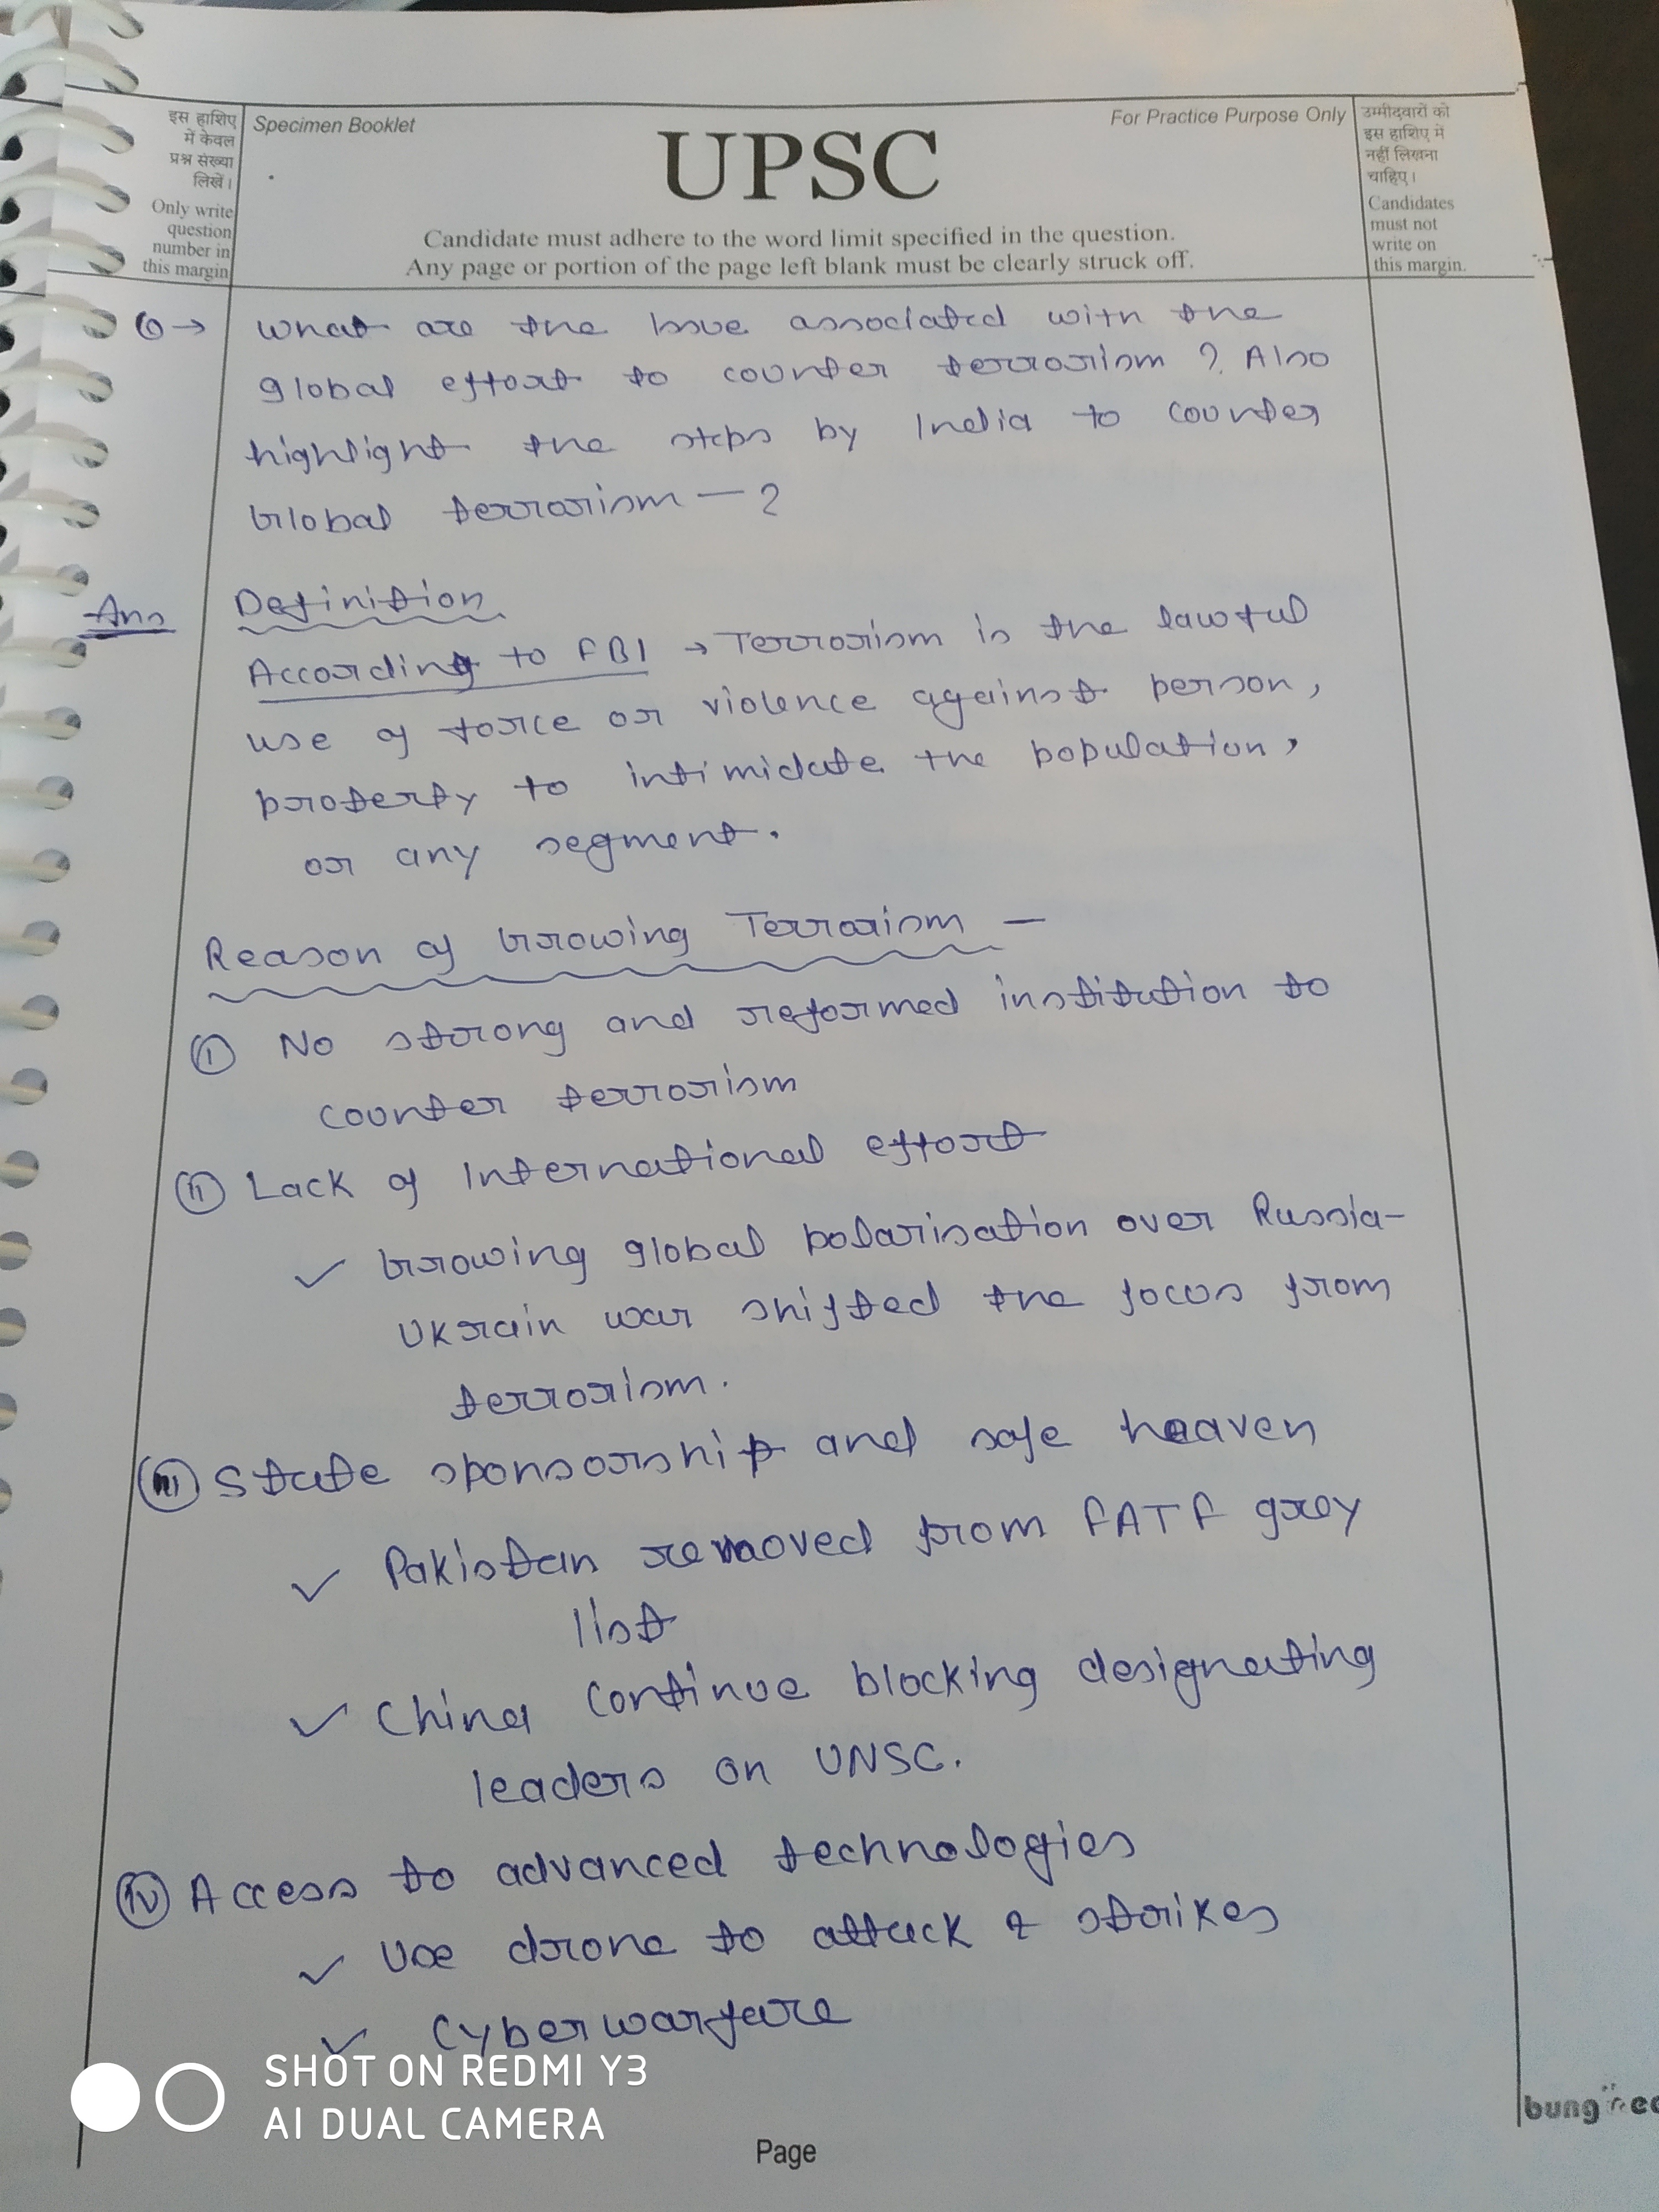 इस हाशिए
में केवल
प्रश्न संख्या
लिखें।
Only write
question
number in
this margin
Specimen Booklet
For Practice Purpose Only
UPSC
Candidate must adhere to the word limit specified in the question.
Any page or portion of the page left blank must be clearly struck off.
उम्मीदवारों को
इस हाशिए में
नहीं लिखना
चाहिए।
Candidates
must not
write on
this margin.
6→ What are the Issue associated with the
global effort to counter terrorism ? Also
highlight the steps by India to counter
Global terrorism — ?
Ans Definition
According to FBI → Terrorism is the lawful
use of force or violence against person,
property to intimidate the population,
or any segment.
Reason of Growing Terrorism —
(i) No strong and reformed institution to
counter terrorism
(ii) Lack of International effort
✓ Growing global polarisation over Russia-
Ukrain war shifted the focus from
terrorism.
(iii) State sponsorship and safe heaven
✓ Pakistan removed from FATF grey
list
✓ China continue blocking designating
leaders on UNSC.
(iv) Access to advanced technologies
✓ Use drone to attack & strikes
✓ Cyber warfare
SHOT ON REDMI Y3
AI DUAL CAMERA
Page